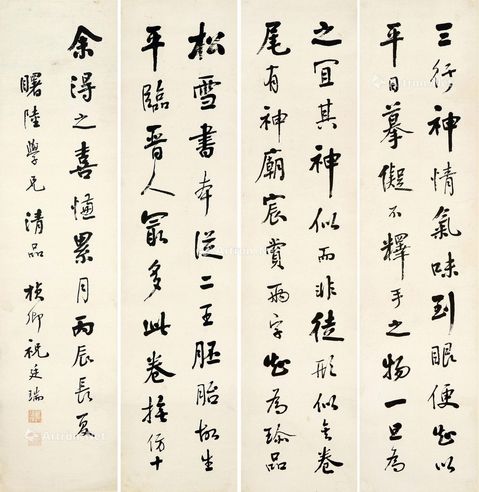 三行神情氣味到眼便知以
平日摹儗不釋手之物一旦為
之冝其神似而非徒形似卷
尾有神廟宸賞兩字知為珍品
松雪書本從二王胚胎故生
平臨晉人最多此卷橅仿十
余得之喜累月丙辰長夏
曙陸學兄清品 楨卿祝廷瑞
Artron.Net